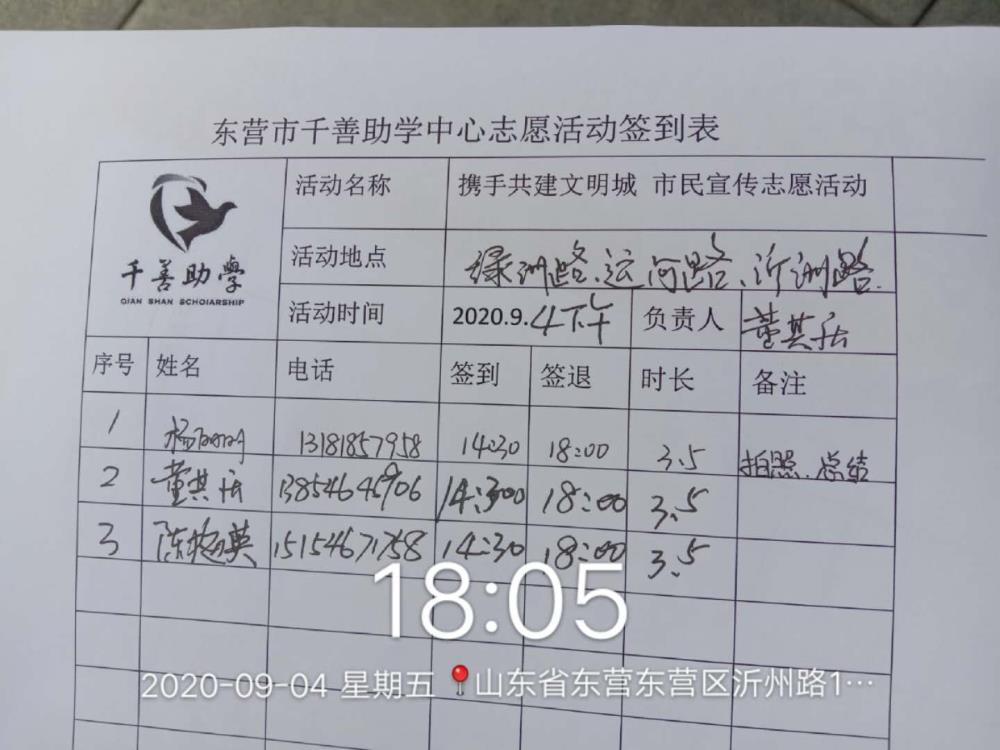 东营市千善助学中心志愿活动签到表
千善助學
QIAN SHAN SCHOIARSHIP
活动名称 携手共建文明城 市民宣传志愿活动
活动地点 绿洲路、运河路、沂洲路.
活动时间 2020.9.4下午 负责人 董其
序号 姓名 电话 签到 签退 时长 备注
1 杨 13181857958 14:30 18:00 3.5 拍照、总结
2 董其 13854645906 14:300 18:00 3.5
3 陈 英 15154671758 14:30 18:00 3.5
18:05
2020-09-04 星期五 山东省东营东营区沂州路1…